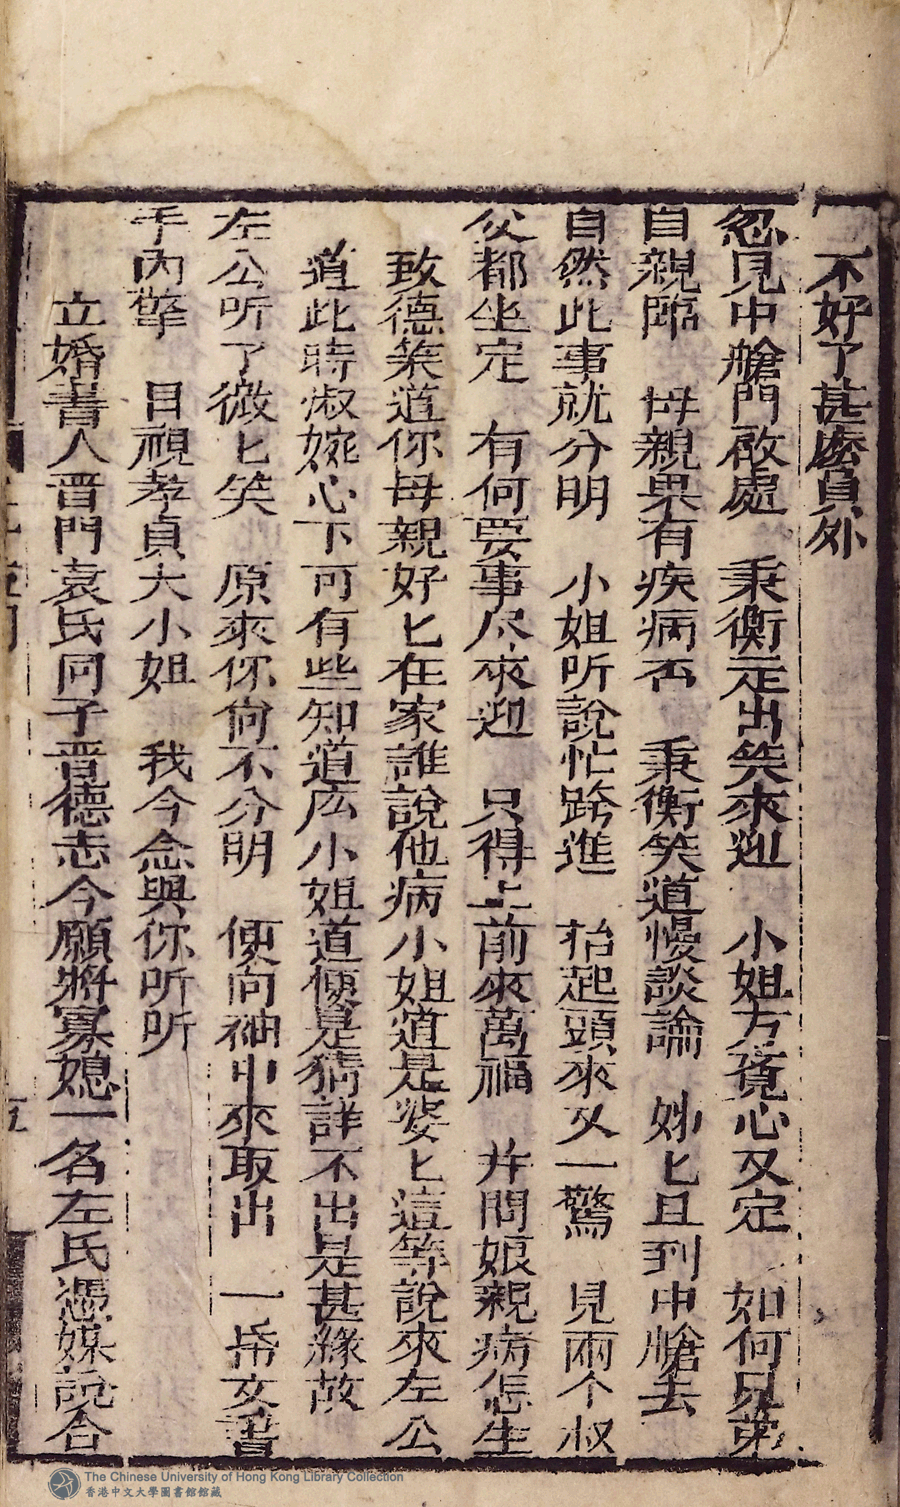 不好了甚庅員外
忽見中艙門啟處　秉衡走出笑來迎　小姐方覔心又定　如何兄弟
自親臨　母親果有疾病否　秉衡笑道慢談論　妙匕且到中艙去
自然此事就分明　小姐听說忙跨進　抬起頭來又一驚　見兩个叔
父都坐定　有何要事尽來迎　只得上前來萬福　并問娘親病怎生
致德笑道你母親好匕在家誰說他病小姐道是婆匕這等說來左公
道此時淑婉心下可有些知道庅小姐道便是猜詳不出是甚緣故
左公听了微匕笑　原來你尙不分明　便向袖中來取出　一帋文書
手內擎　目視孝貞大小姐　我今念與你听听
立婚書人晋門袁氏同子晋德志今願將寡媳一名左氏憑媒說合
五
The Chinese University of Hong Kong Library Collection
香港中文大學圖書館館藏